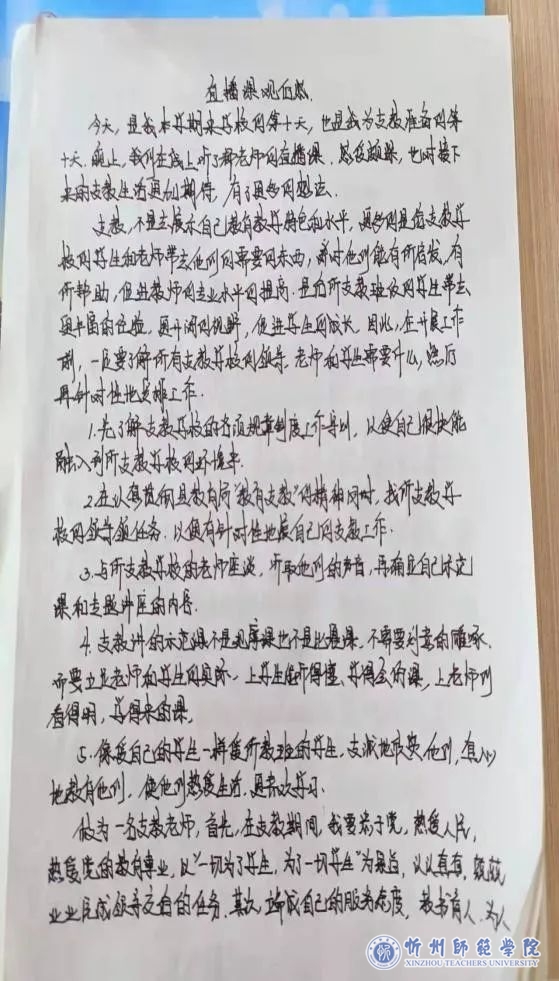 直播课观后感.
今天,是我本学期来学校的第十天,也是我为支教准备的第
十天.晚上,我们在线上听了郝老师的直播课.感受颇深,也对接下
来的支教生活更加期待,有了更多的想法.
支教,不是去展示自己教育教学特色和水平,更多的是给支教学
校的学生和老师带去他们的需要的东西,让他们能有所启发,有
所帮助,促进教师的专业水平的提高.是给所支教班级的学生带去
更丰富的经验,更开阔的视野,促进学生的成长.因此,在开展工作
前,一定要了解所有支教学校的领导、老师和学生需要什么,然后
再针对性地安排工作.
1.先了解支教学校的各项规章制度工作导则,以使自己很快能
融入到所支教学校的环境中.
2.在认真贯彻县教育局"教育支教"的精神同时,找所支教学
校的领导领任务.以便有针对性地展自己的支教工作.
3.与所支教学校的老师座谈,听取他们的声音,再确立自己示范
课和专题讲座的内容.
4.支教讲的示范课不是观摩课也不是比赛课,不需要刻意的雕琢.
需要立足老师和学生的实际.上学生能听得懂、学得会的课,上老师们
看得明,学得来的课.
5.像爱自己的学生一样爱所教班的学生,真诚地欣赏他们,耐心
地教育他们,使他们热爱生活,更喜欢学习.
做为一名支教老师,首先,在支教期间,我要忠于党,热爱人民,
热爱党的教育事业,以"一切为了学生,为了一切学生"为原点,认认真真,兢兢
业业完成领导交白的任务.其次,端正自己的服务态度,教书育人,为人
忻州師範學院
XINZHOU TEACHERS UNIVERSITY